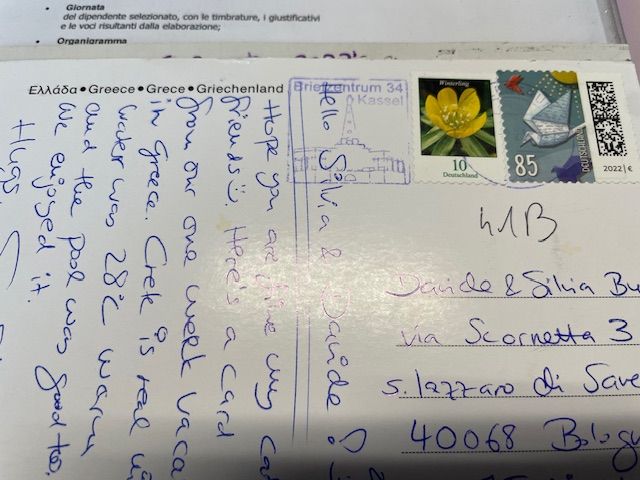 Giornata
del dipendente selezionato, con le timbrature, i giustificativi
e le voci risultanti dalla elaborazione;
Organigramma
Ελλάδα • Greece • Grece • Griechenland
Briefzentrum 34
Kassel
Winterling
10
Deutschland
85
DEUTSCHLAND
2022 | €
41B
Davide & Silvia Bu
via Scornetta 3
S. Lazzaro di Save
40068 Bologn
Hello Silvia & Davide
Hope you are fine my
friends Here's a card
from our one week vaca
in Greece. Crete is real
water was 28°C warm
and the pool was good too.
We enjoyed it.
Hugs